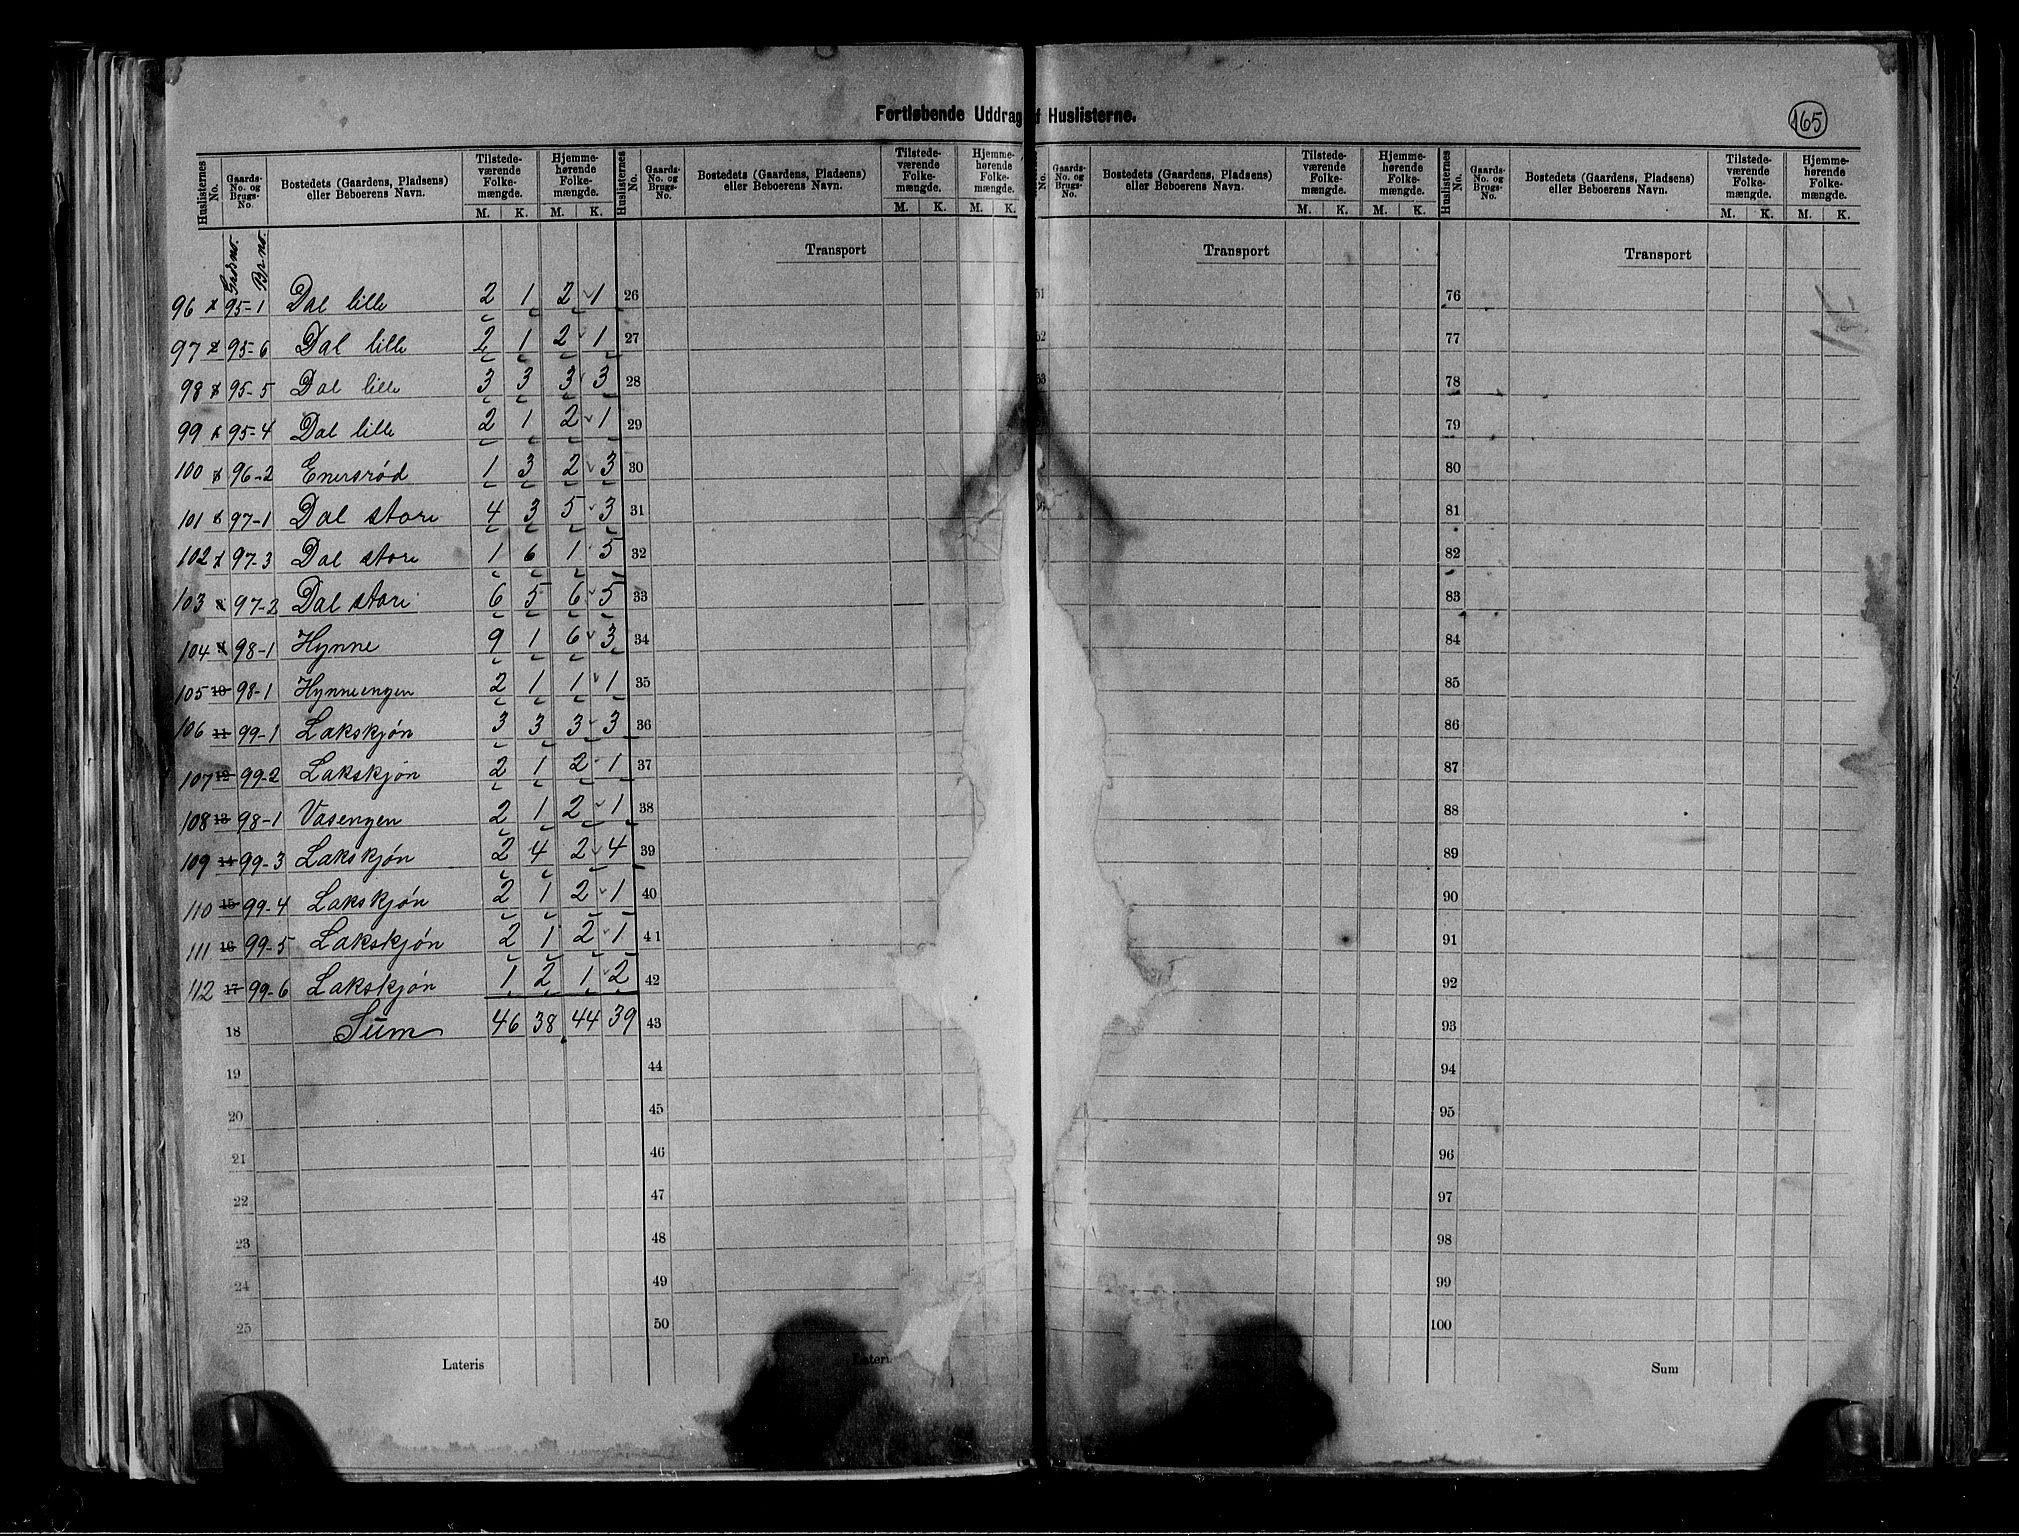 Fortløbende Uddrag af Huslisterne.
165
Huslisternes No. Gaards-No. og Brugs-No. Bostedets (Gaardens, Pladsens) eller Beboerens Navn. Tilstedeværende Folkemængde. M. K. Hjemmehørende Folkemængde. M. K.
Huslisternes No. Gaards-No. og Brugs-No. Bostedets (Gaardens, Pladsens) eller Beboerens Navn. Tilstedeværende Folkemængde. M. K. Hjemmehørende Folkemængde. M. K.
No. Gaards-No. og Brugs-No. Bostedets (Gaardens, Pladsens) eller Beboerens Navn. Tilstedeværende Folkemængde. M. K. Hjemmehørende Folkemængde. M. K.
Huslisternes No. Gaards-No. og Brugs-No. Bostedets (Gaardens, Pladsens) eller Beboerens Navn. Tilstedeværende Folkemængde. M. K. Hjemmehørende Folkemængde. M. K.
Grdsno. Br no.
96 95-1 Dal lille 2 1 2 1
97 95-6 Dal lille 2 1 2 1
98 95-5 Dal lille 3 3 3 3
99 95-4 Dal lille 2 1 2 1
100 96-2 Enersrød 1 3 2 3
101 97-1 Dal store 4 3 5 3
102 97-3 Dal store 1 6 1 5
103 97-2 Dal store 6 5 6 5
104 98-1 Hynne 9 1 6 3
105 10 98-1 Hynneengen 2 1 1 1
106 11 99-1 Lakskjøn 3 3 3 3
107 12 99-2 Lakskjøn 2 1 2 1
108 13 98-1 Vasengen 2 1 2 1
109 14 99-3 Lakskjøn 2 4 2 4
110 15 99-4 Lakskjøn 2 1 2 1
111 16 99-5 Lakskjøn 2 1 2 1
112 17 99-6 Lakskjøn 1 2 1 2
18 Sum 46 38 44 39
19
20
21
22
23
24
25
Lateris
Transport
26
27
28
29
30
31
32
33
34
35
36
37
38
39
40
41
42
43
44
45
46
47
48
49
50
Lateri
Transport
51
52
53
Transport
76
77
78
79
80
81
82
83
84
85
86
87
88
89
90
91
92
93
94
95
96
97
98
99
100
Sum